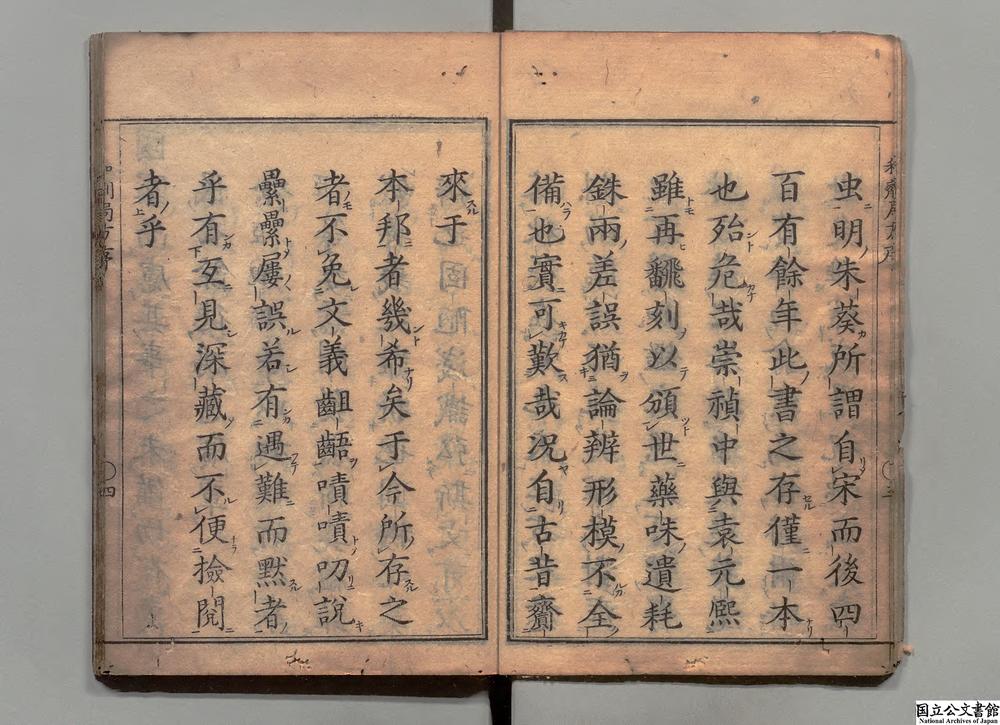 虫明朱葵所謂自宋而後四
百有餘年此書之存僅一本
也殆危哉崇禎中與袁元熙
雖再飜刻以頒世藥味遺耗
銖兩差誤猶論辨形模不全
備也實可歎哉况自古昔齎
來于
本邦者幾希矣于今所存之
者不免文義齟齬嘖嘖叨説
纍纍屢誤若有遇難而黙者
乎有互見深藏而不便撿閲
者乎
四
国立公文書館
National Archives of Japan